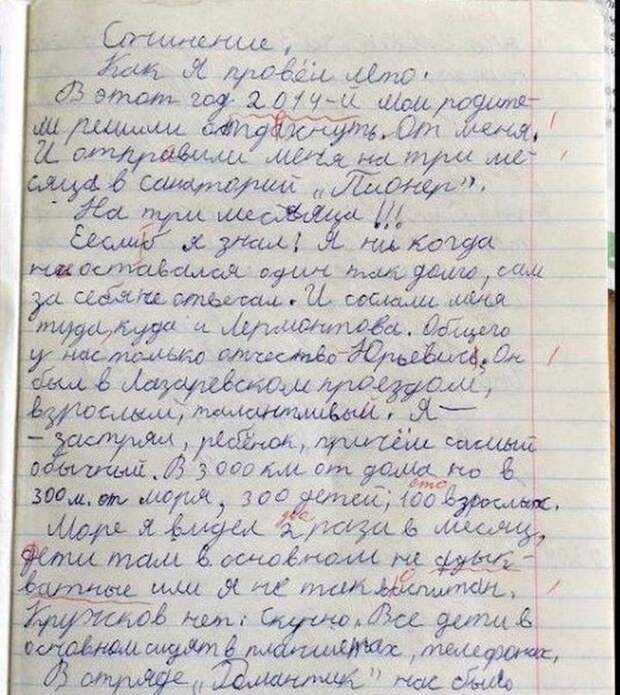 Сочинение.
Как я провёл лето.
В этот год 2014-й мои родите-
ли решили отдахнуть. От меня.
И отправили меня на три ме-
сяца в санаторий „Пионер".
На три месяца!!!
Еесли б я знал! Я ни когда
не оставался один так долго, сам
за себя не отвечал. И сослали меня
туда, куда и Лермонтова. Общего
у нас только отчество - Юрьевич. Он
был в Лазаревском проездом,
взрослый, талантливый. Я —
- застрял, ребёнок, причём самый
обычный. В 3000 км от дома но в
сто
300 м. от моря, 300 детей, 100 взрослых.
два
Море я видел 2 раза в месяц,
дети там в основном не адык-
ватные или я не так воспитан.
Кружков нет. Скучно. Все дети в
основном сидят в планшетах, телефонах.
В отряде „Романтик" нас было